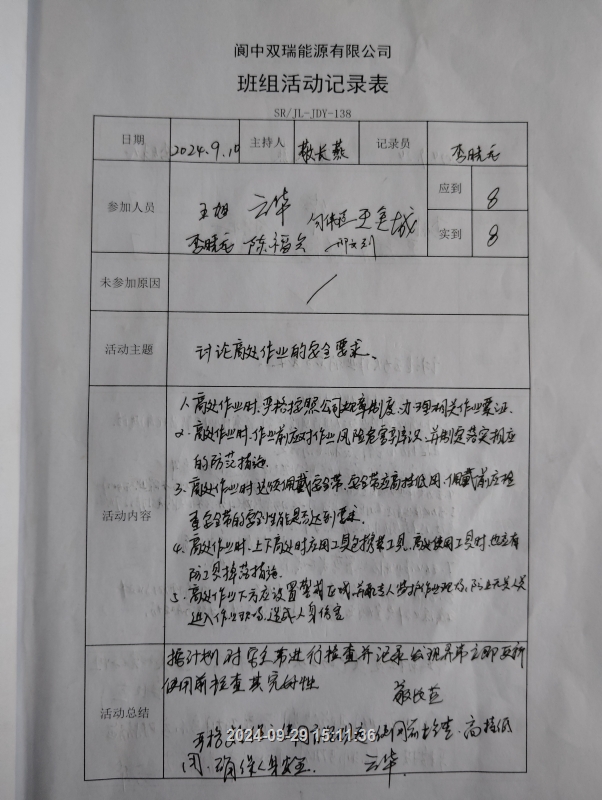 阆中双瑞能源有限公司
班组活动记录表
SR/JL-JDY-138
日期 2024.9.10 主持人 敬长燕 记录员 李晓东
参加人员 王旭 云华 王定城 应到 8
李晓东 陈福兴 实到 8
未参加原因 /
活动主题 讨论高处作业的安全要求、
活动内容
1、高处作业时、严格按照公司规章制度、办理相关作业票证.
2、高处作业时、作业前应对作业风险危害辨识、并制定落实相应
的防范措施.
3、高处作业时必须佩戴安全带、安全带应高挂低用、佩戴前应检
查安全带的安全性能是否达到要求.
4、高处作业时、上下高处时应用工具包携带工具、高处使用工具时、也应有
防工具掉落措施.
5、高处作业下方应设置警戒区域、并配专人监护作业现场、防止无关人员
进入作业现场、造成人身伤害
活动总结
按计划对安全带进行检查并记录发现异常立即更换
使用前检查其完好性
敬长燕
严格 使用前检查、高挂低
用、确保人身安全. 云华
2024-09-29 15:11:36